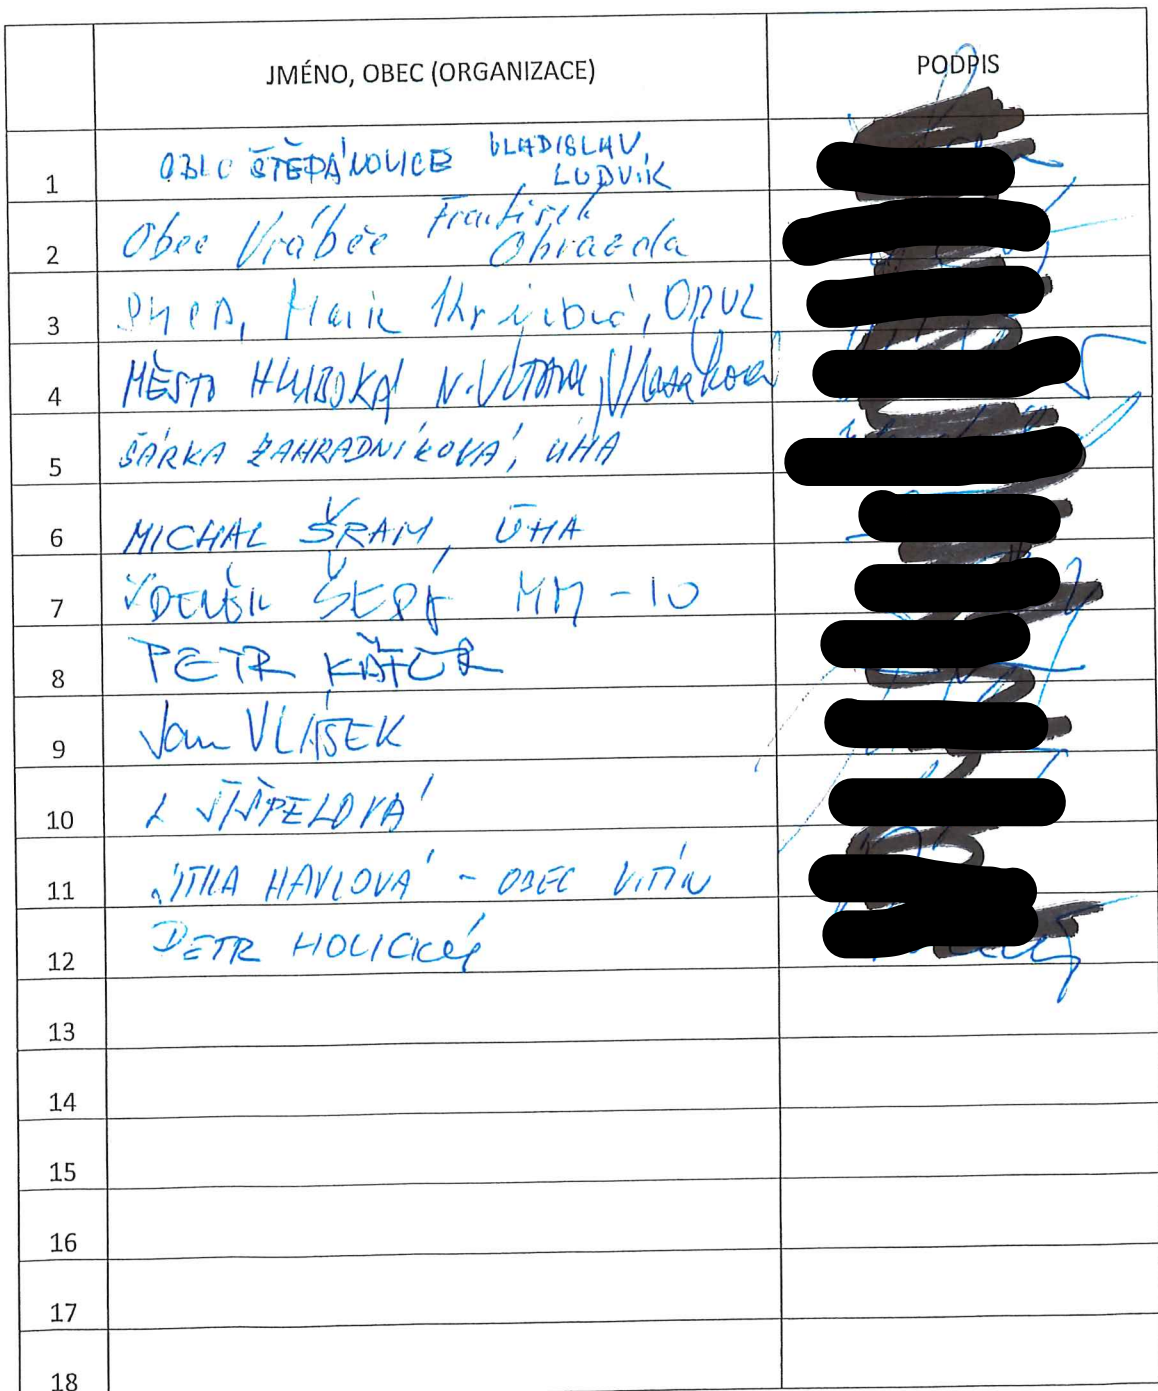 JMÉNO, OBEC (ORGANIZACE) PODPIS
1 OBEC ŠTĚPÁNOVICE VLADISLAV LUDVÍK
2 Obec Vrábče František Obrazda
3
4 MĚSTO HLUBOKÁ N. VLTAVOU
5 ŠÁRKA ZAHRADNÍKOVÁ, ÚHA
6 MICHAL ŠRAM, ÚHA
7 MM-10
8 PETR
9 Jan VLÁŠEK
10
11 JITKA HAVLOVÁ - OBEC VITÍN
12 PETR HOLICKÝ
13
14
15
16
17
18